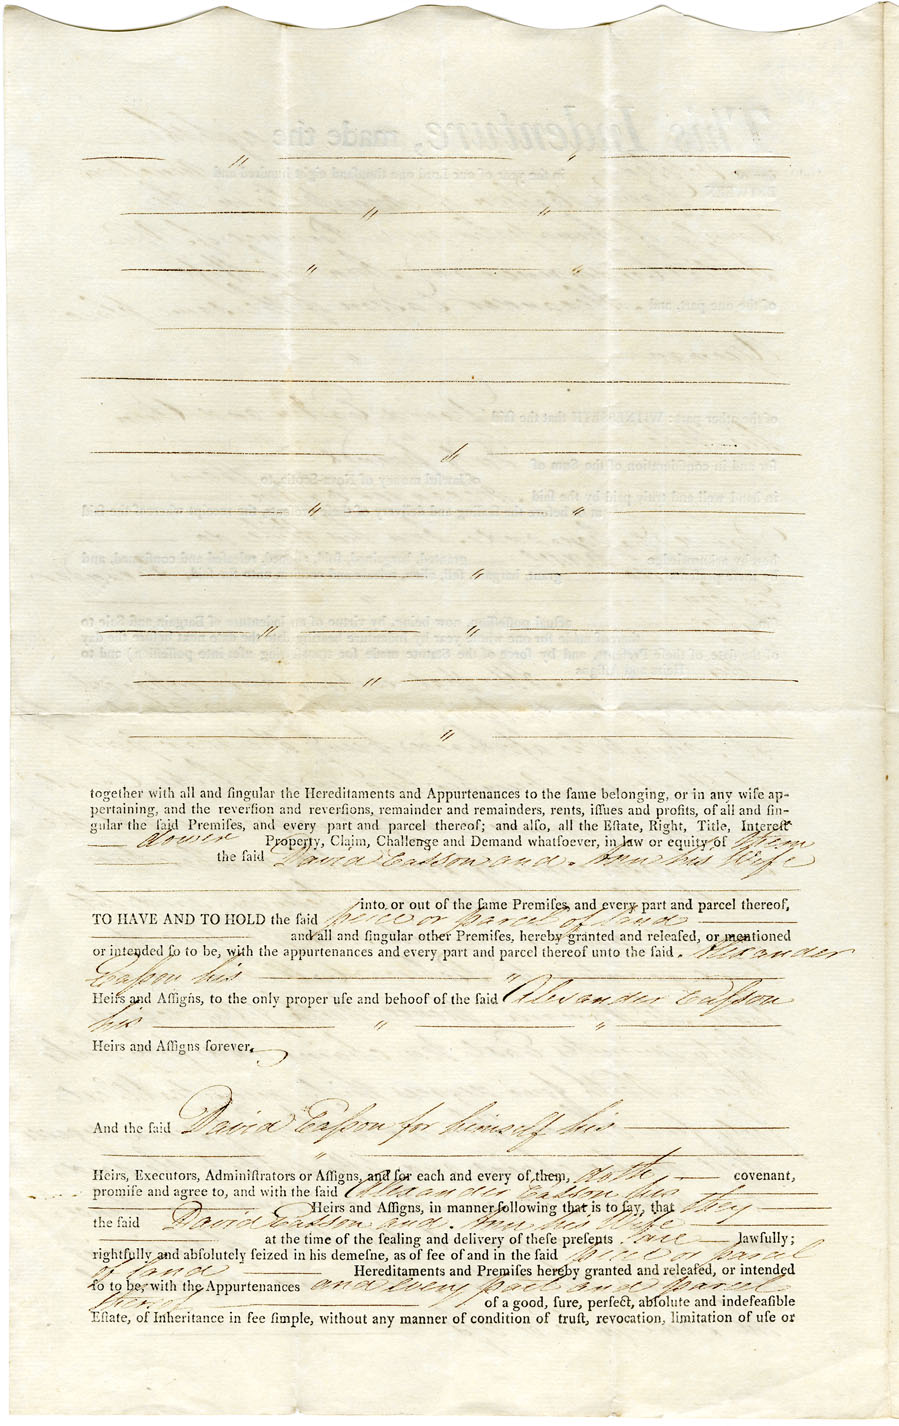 together with all and ſingular the Hereditaments and Appurtenances to the ſame belonging, or in any wiſe ap-
pertaining, and the reverſion and reverſions, remainder and remainders, rents, iſſues and profits, of all and ſin-
gular the ſaid Premiſes, and every part and parcel thereof; and alſo, all the Eſtate, Right, Title, Intereſt
dower Property, Claim, Challenge and Demand whatſoever, in law or equity of them
the ſaid David Easson and Ann his Wife
into or out of the ſame Premiſes, and every part and parcel thereof,
TO HAVE AND TO HOLD the ſaid piece or parcel of land
and all and ſingular other Premiſes, hereby granted and releaſed, or mentioned
or intended ſo to be, with the appurtenances and every part and parcel thereof unto the ſaid Alexander
Eaſson his
Heirs and Aſſigns, to the only proper uſe and behoof of the ſaid Alexander Eaſson
his
Heirs and Aſſigns forever.
And the ſaid David Eaſson for himself his
Heirs, Executors, Adminiſtrators or Aſſigns, and for each and every of them, doth covenant,
promiſe and agree to, and with the ſaid Alexander Easson his
Heirs and Aſſigns, in manner following that is to ſay, that they
the ſaid David Easson and Ann his Wife
at the time of the ſealing and delivery of theſe preſents are lawfully;
rightfully and abſolutely ſeized in his demeſne, as of fee of and in the ſaid piece or parcel
of land Hereditaments and Premiſes hereby granted and releaſed, or intended
ſo to be, with the Appurtenances and every part and parcel
thereof of a good, ſure, perfect, abſolute and indefeaſible
Eſtate, of Inheritance in fee ſimple, without any manner of condition of truſt, revocation, limitation of uſe or